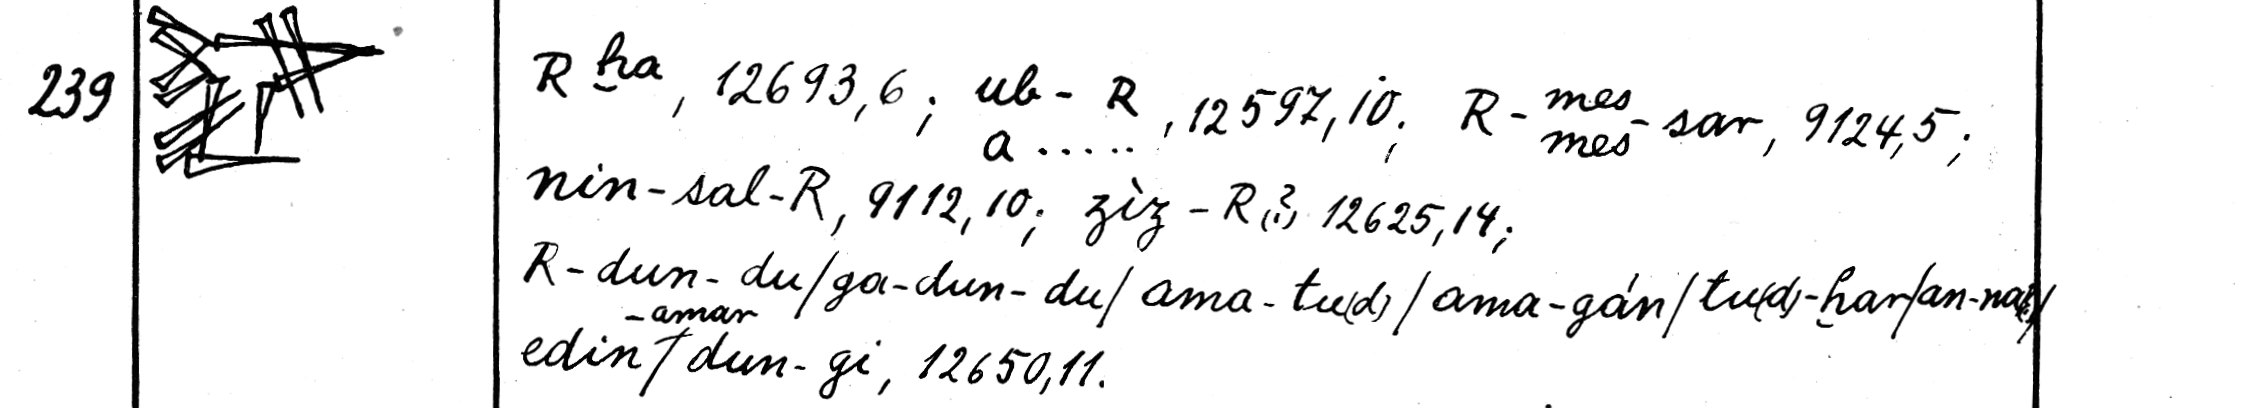 239
R ḫa, 12693,6; ub-R, 12597,10; R-mes-sar, 9124,5;
a ..... mes
nin-sal-R, 9112,10; zìz-R(?) 12625,14;
R-dun-du/ga-dun-du/ama-tu(d)/ama-gán/tu(d)-ḫar/an-na(?)/
-amar
edin/dun-gi, 12650,11.